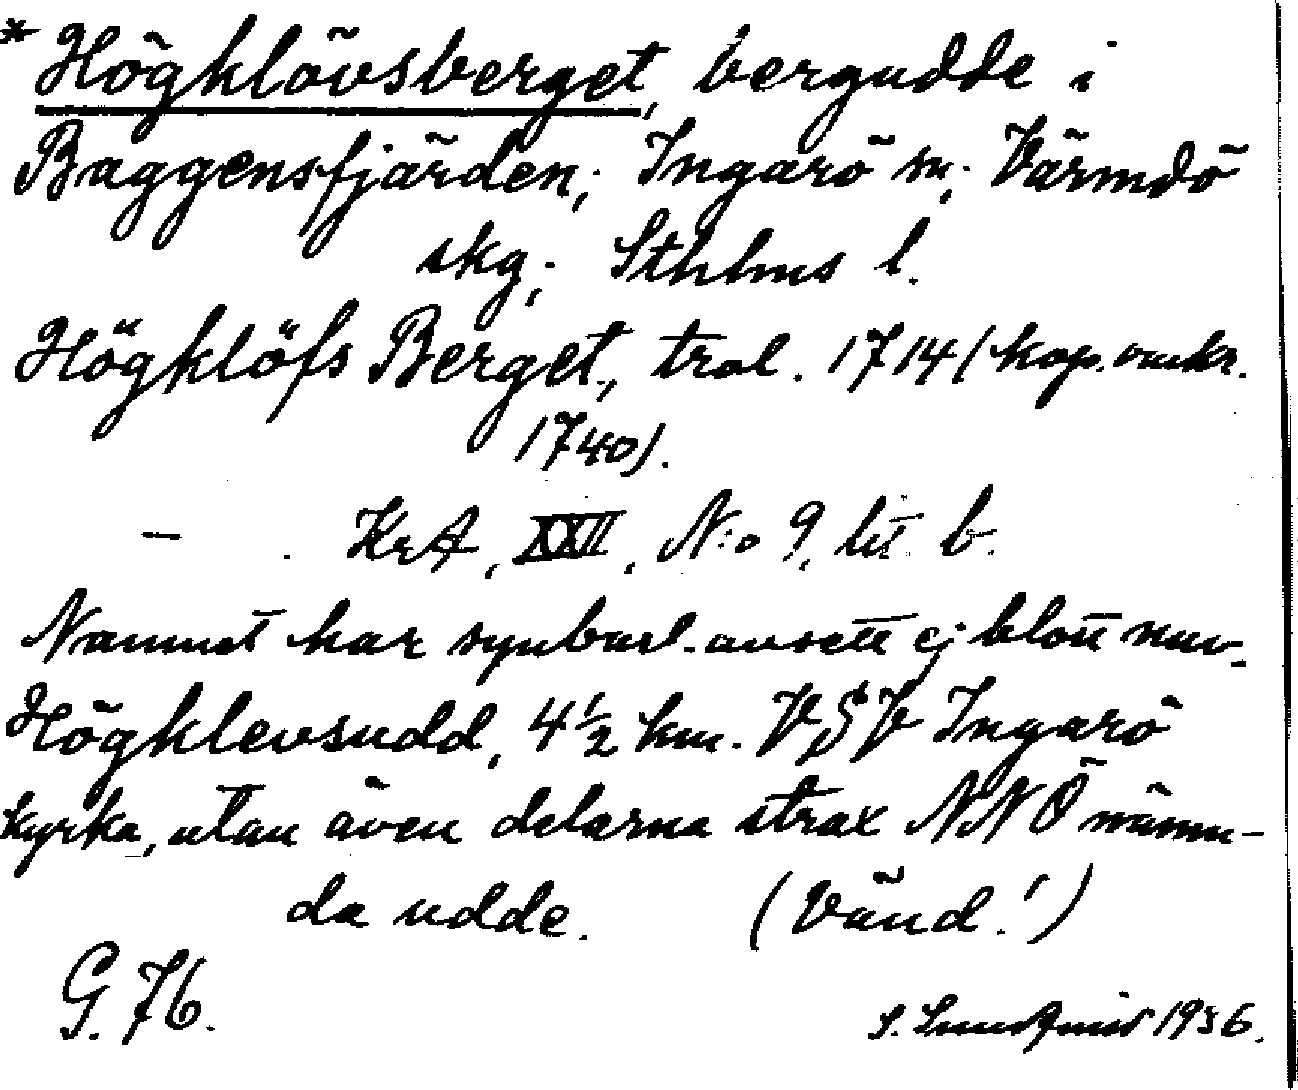 * Högklövsberget, bergudde i
Baggensfjärden; Ingarö sn; Värmdö
skg; Sthlms l.
Högklöfs Berget, trol. 1714 (kop. omkr.
1740).
— . KrA, XXII, N:o 9, litt b.
Namnet har synbarl. avsett ej blott nuv.
Högklevsudd, 4½ km. VSV Ingarö
kyrka, utan även delarna strax NNÖ nämn-
da udde. (Vänd!)
G. 76.
S. 1936.